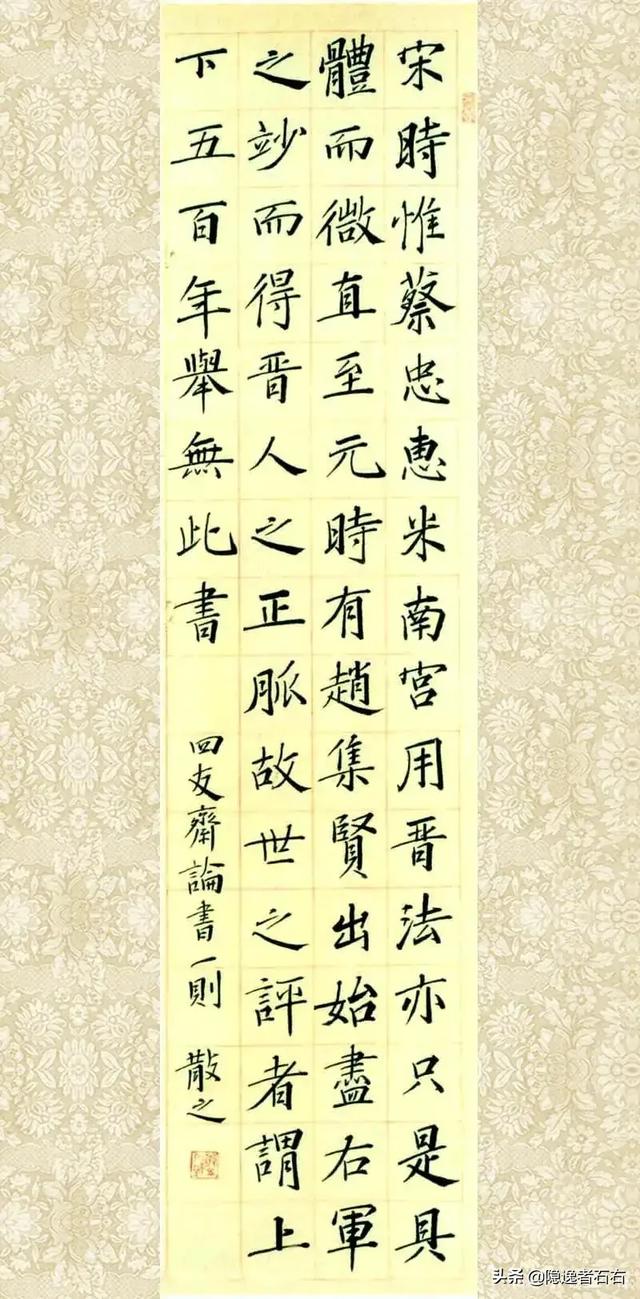 宋時惟蔡忠惠米南宫用晋法亦只是具
體而微直至元時有趙集賢出始盡右軍
之竗而得晋人之正脈故世之評者謂上
下五百年舉無此書
四友齋論書一則 散之
头条 @隐逸者石右